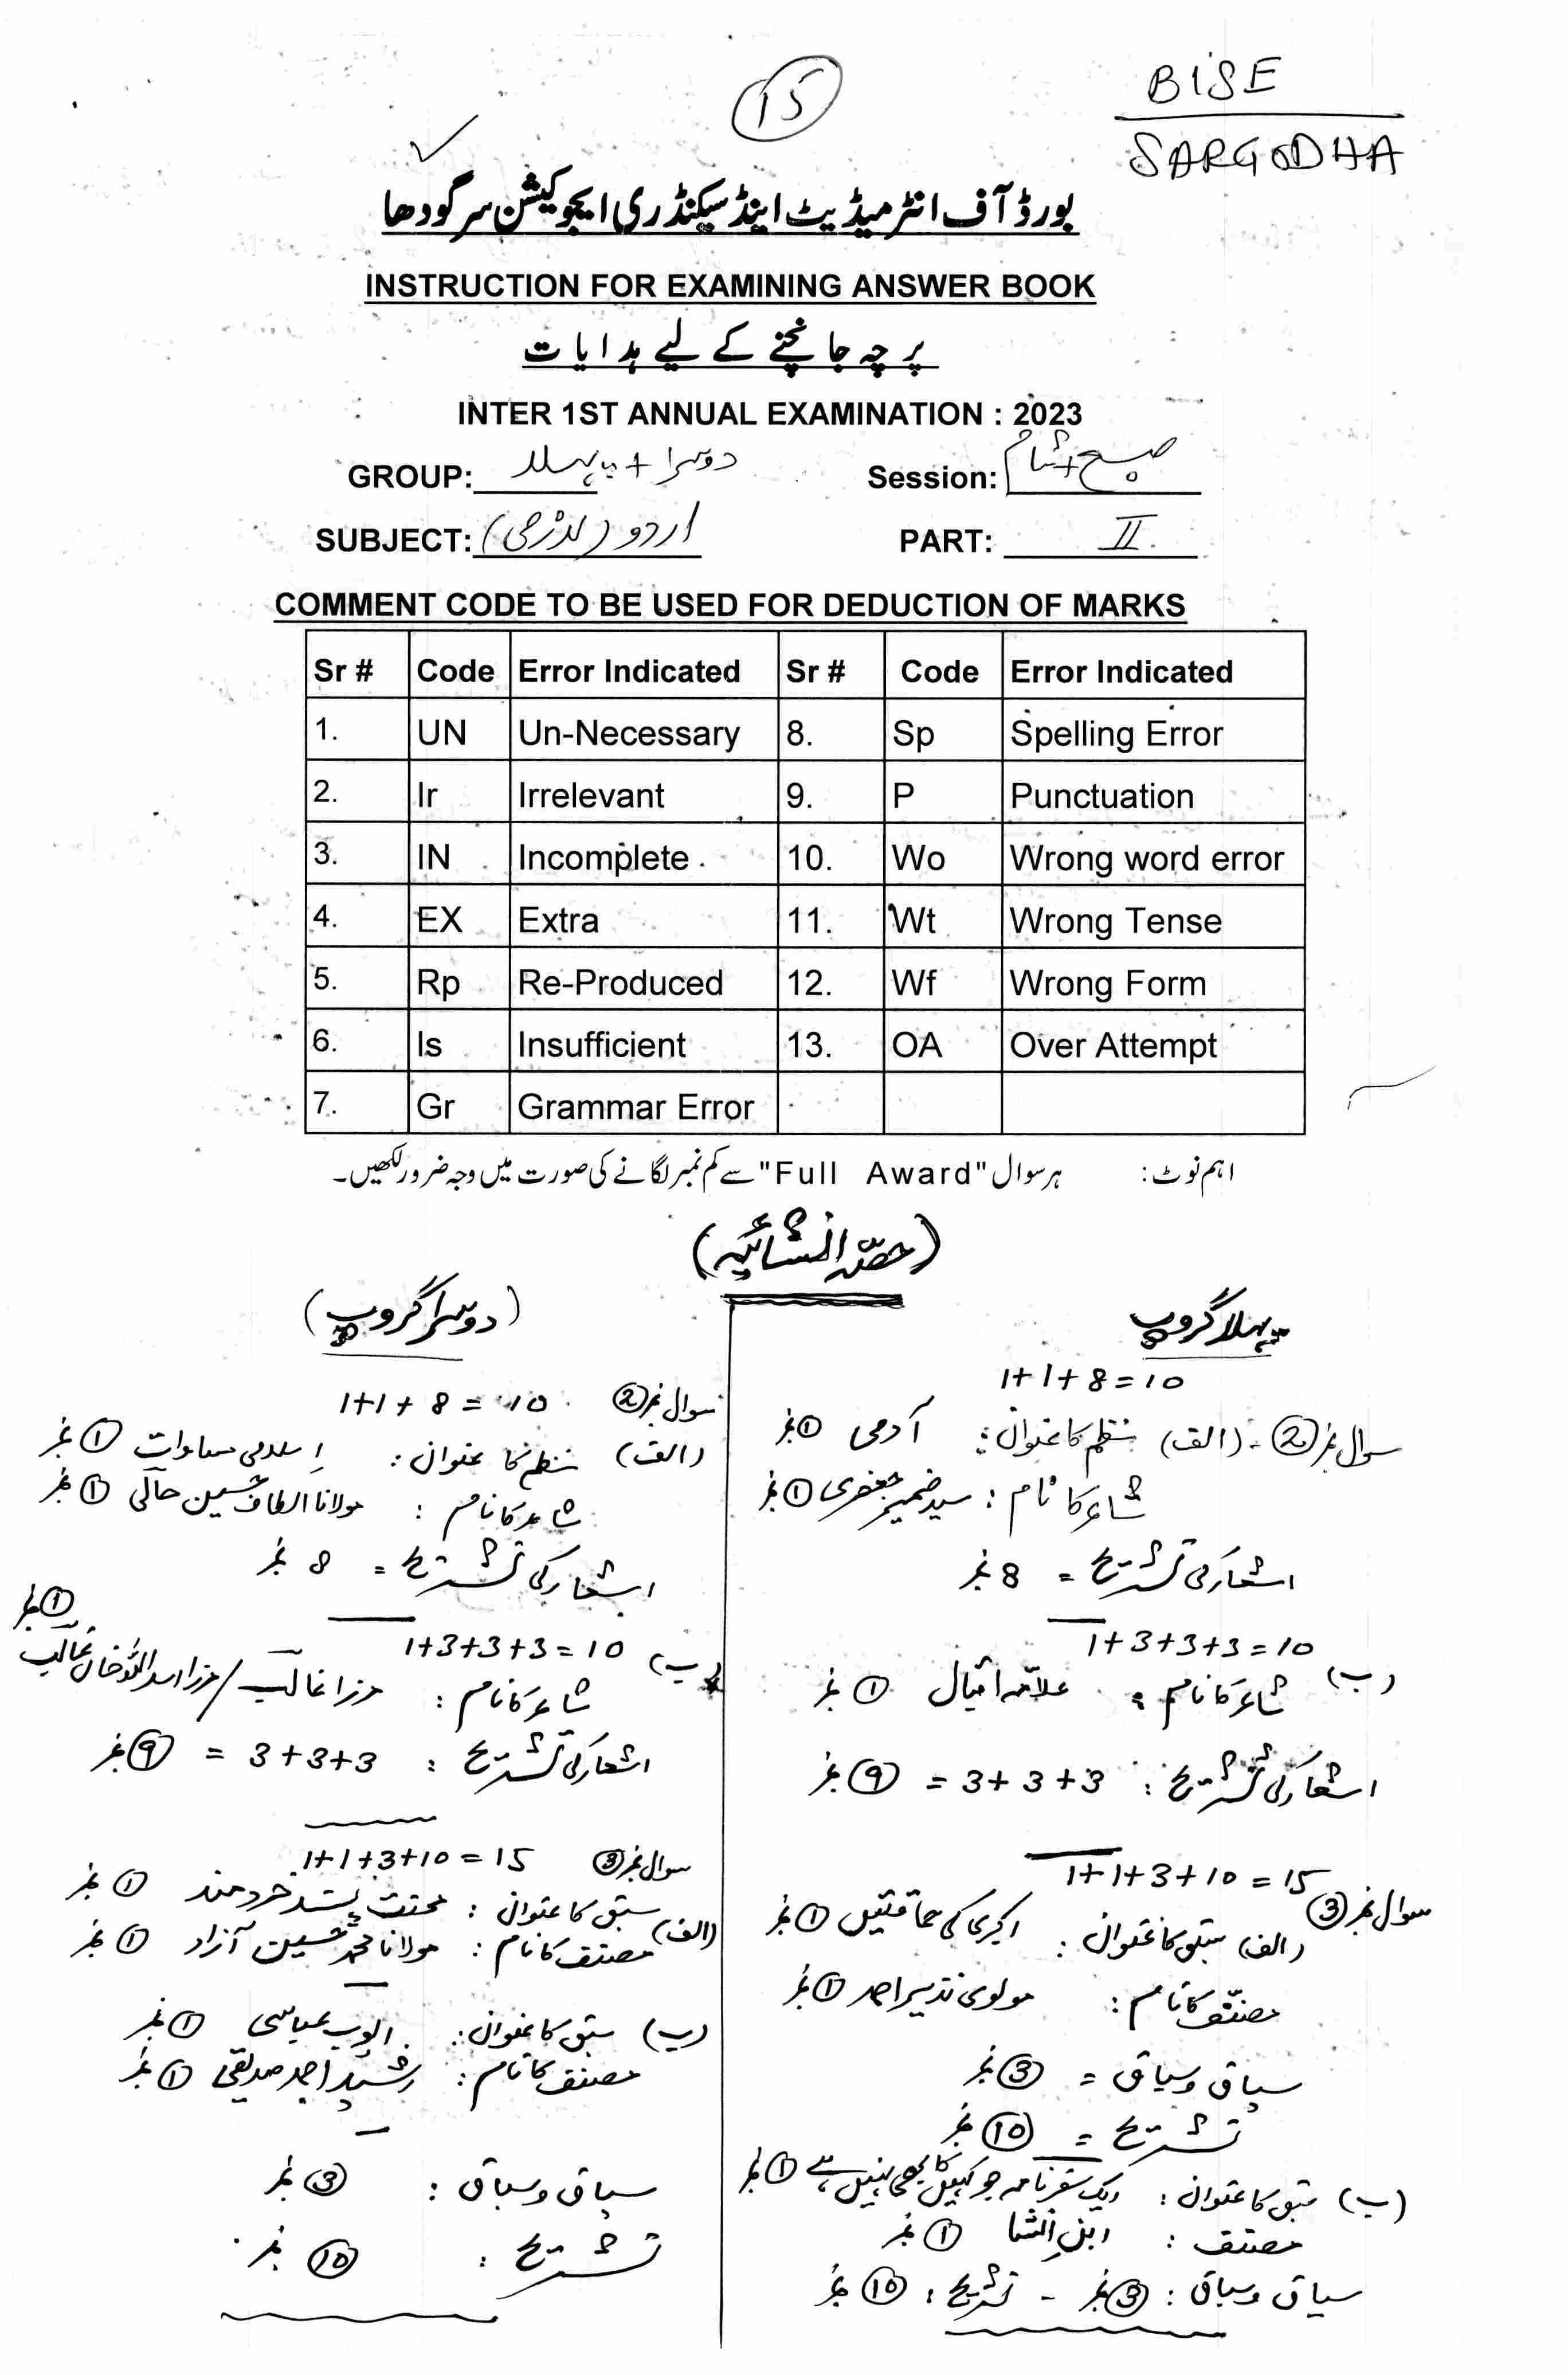 15
BISE
SARGODHA
بورڈ آف انٹرمیڈیٹ اینڈ سیکنڈری ایجوکیشن سرگودھا
INSTRUCTION FOR EXAMINING ANSWER BOOK
پرچہ جانچنے کے لیے ہدایات
INTER 1ST ANNUAL EXAMINATION : 2023
GROUP: دوسرا + پہلا Session: صبح + شام
SUBJECT: اردو (لازمی) PART: II
COMMENT CODE TO BE USED FOR DEDUCTION OF MARKS
Sr # Code Error Indicated Sr # Code Error Indicated
1. UN Un-Necessary 8. Sp Spelling Error
2. Ir Irrelevant 9. P Punctuation
3. IN Incomplete 10. Wo Wrong word error
4. EX Extra 11. Wt Wrong Tense
5. Rp Re-Produced 12. Wf Wrong Form
6. Is Insufficient 13. OA Over Attempt
7. Gr Grammar Error
اہم نوٹ: ہر سوال "Full Award" سے کم نمبر لگانے کی صورت میں وجہ ضرور لکھیں۔
(حصہ انشائیہ)
پہلا گروپ
1+1+8=10
سوال نمبر 2۔ (الف) نظم کا عنوان: آدمی 1 نمبر
شاعر کا نام: سید ضمیر جعفری 1 نمبر
اشعار کی تشریح = 8 نمبر
1+3+3+3=10
(ب) شاعر کا نام: علامہ اقبال 1 نمبر
اشعار کی تشریح: 3+3+3 = 9 نمبر
1+1+3+10=15
سوال نمبر 3
(الف) سبق کا عنوان: اکبری کی حماقتیں 1 نمبر
مصنف کا نام: مولوی نذیر احمد 1 نمبر
سیاق و سباق = 3 نمبر
تشریح = 10 نمبر
(ب) سبق کا عنوان: ایک سفرنامہ جو کہیں کا بھی نہیں ہے 1 نمبر
مصنف: ابن انشا 1 نمبر
سیاق و سباق: 3 نمبر - تشریح: 10 نمبر
(دوسرا گروپ)
سوال نمبر 2 1+1+8 = 10
(الف) نظم کا عنوان: اسلامی مساوات 1 نمبر
شاعر کا نام: مولانا الطاف حسین حالی 1 نمبر
اشعار کی تشریح = 8 نمبر
1+3+3+3=10
(ب) شاعر کا نام: مرزا غالب / مرزا اسد اللہ خاں غالب 1 نمبر
اشعار کی تشریح: 3+3+3 = 9 نمبر
سوال نمبر 3 1+1+3+10=15
(الف) سبق کا عنوان: محنت پسند خردمند 1 نمبر
مصنف کا نام: مولانا محمد حسین آزاد 1 نمبر
(ب) سبق کا عنوان: ایوب عباسی 1 نمبر
مصنف کا نام: رشید احمد صدیقی 1 نمبر
سیاق و سباق: 3 نمبر
تشریح: 10 نمبر